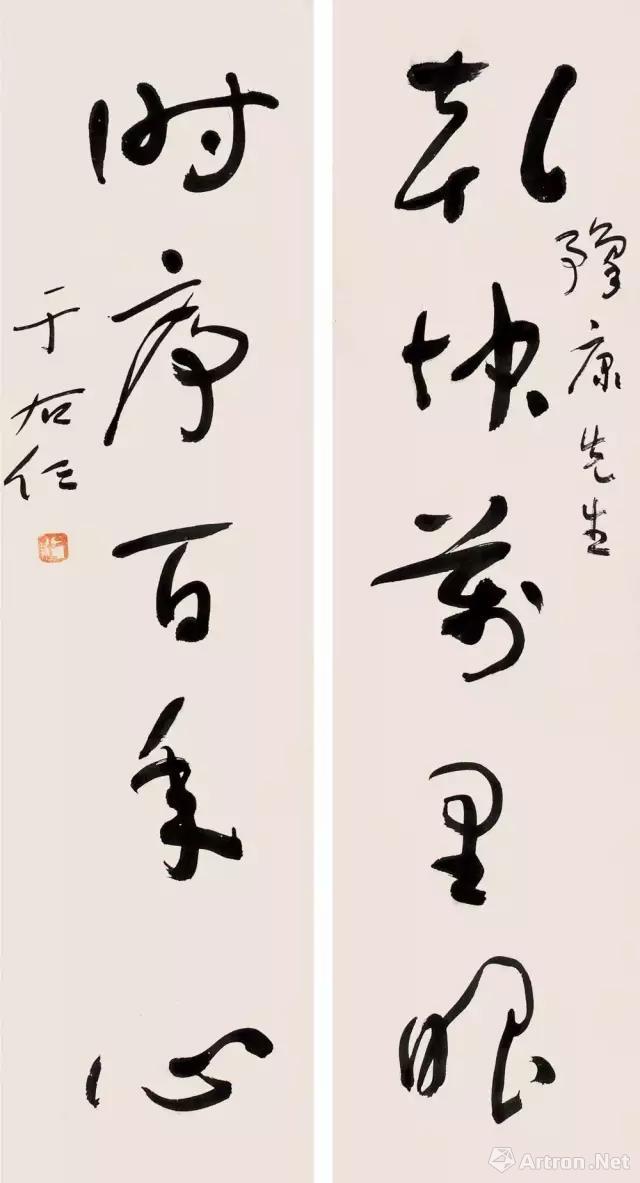 乾坤萬里眼
豫康先生
時序百年心
于右任
Artron.Net